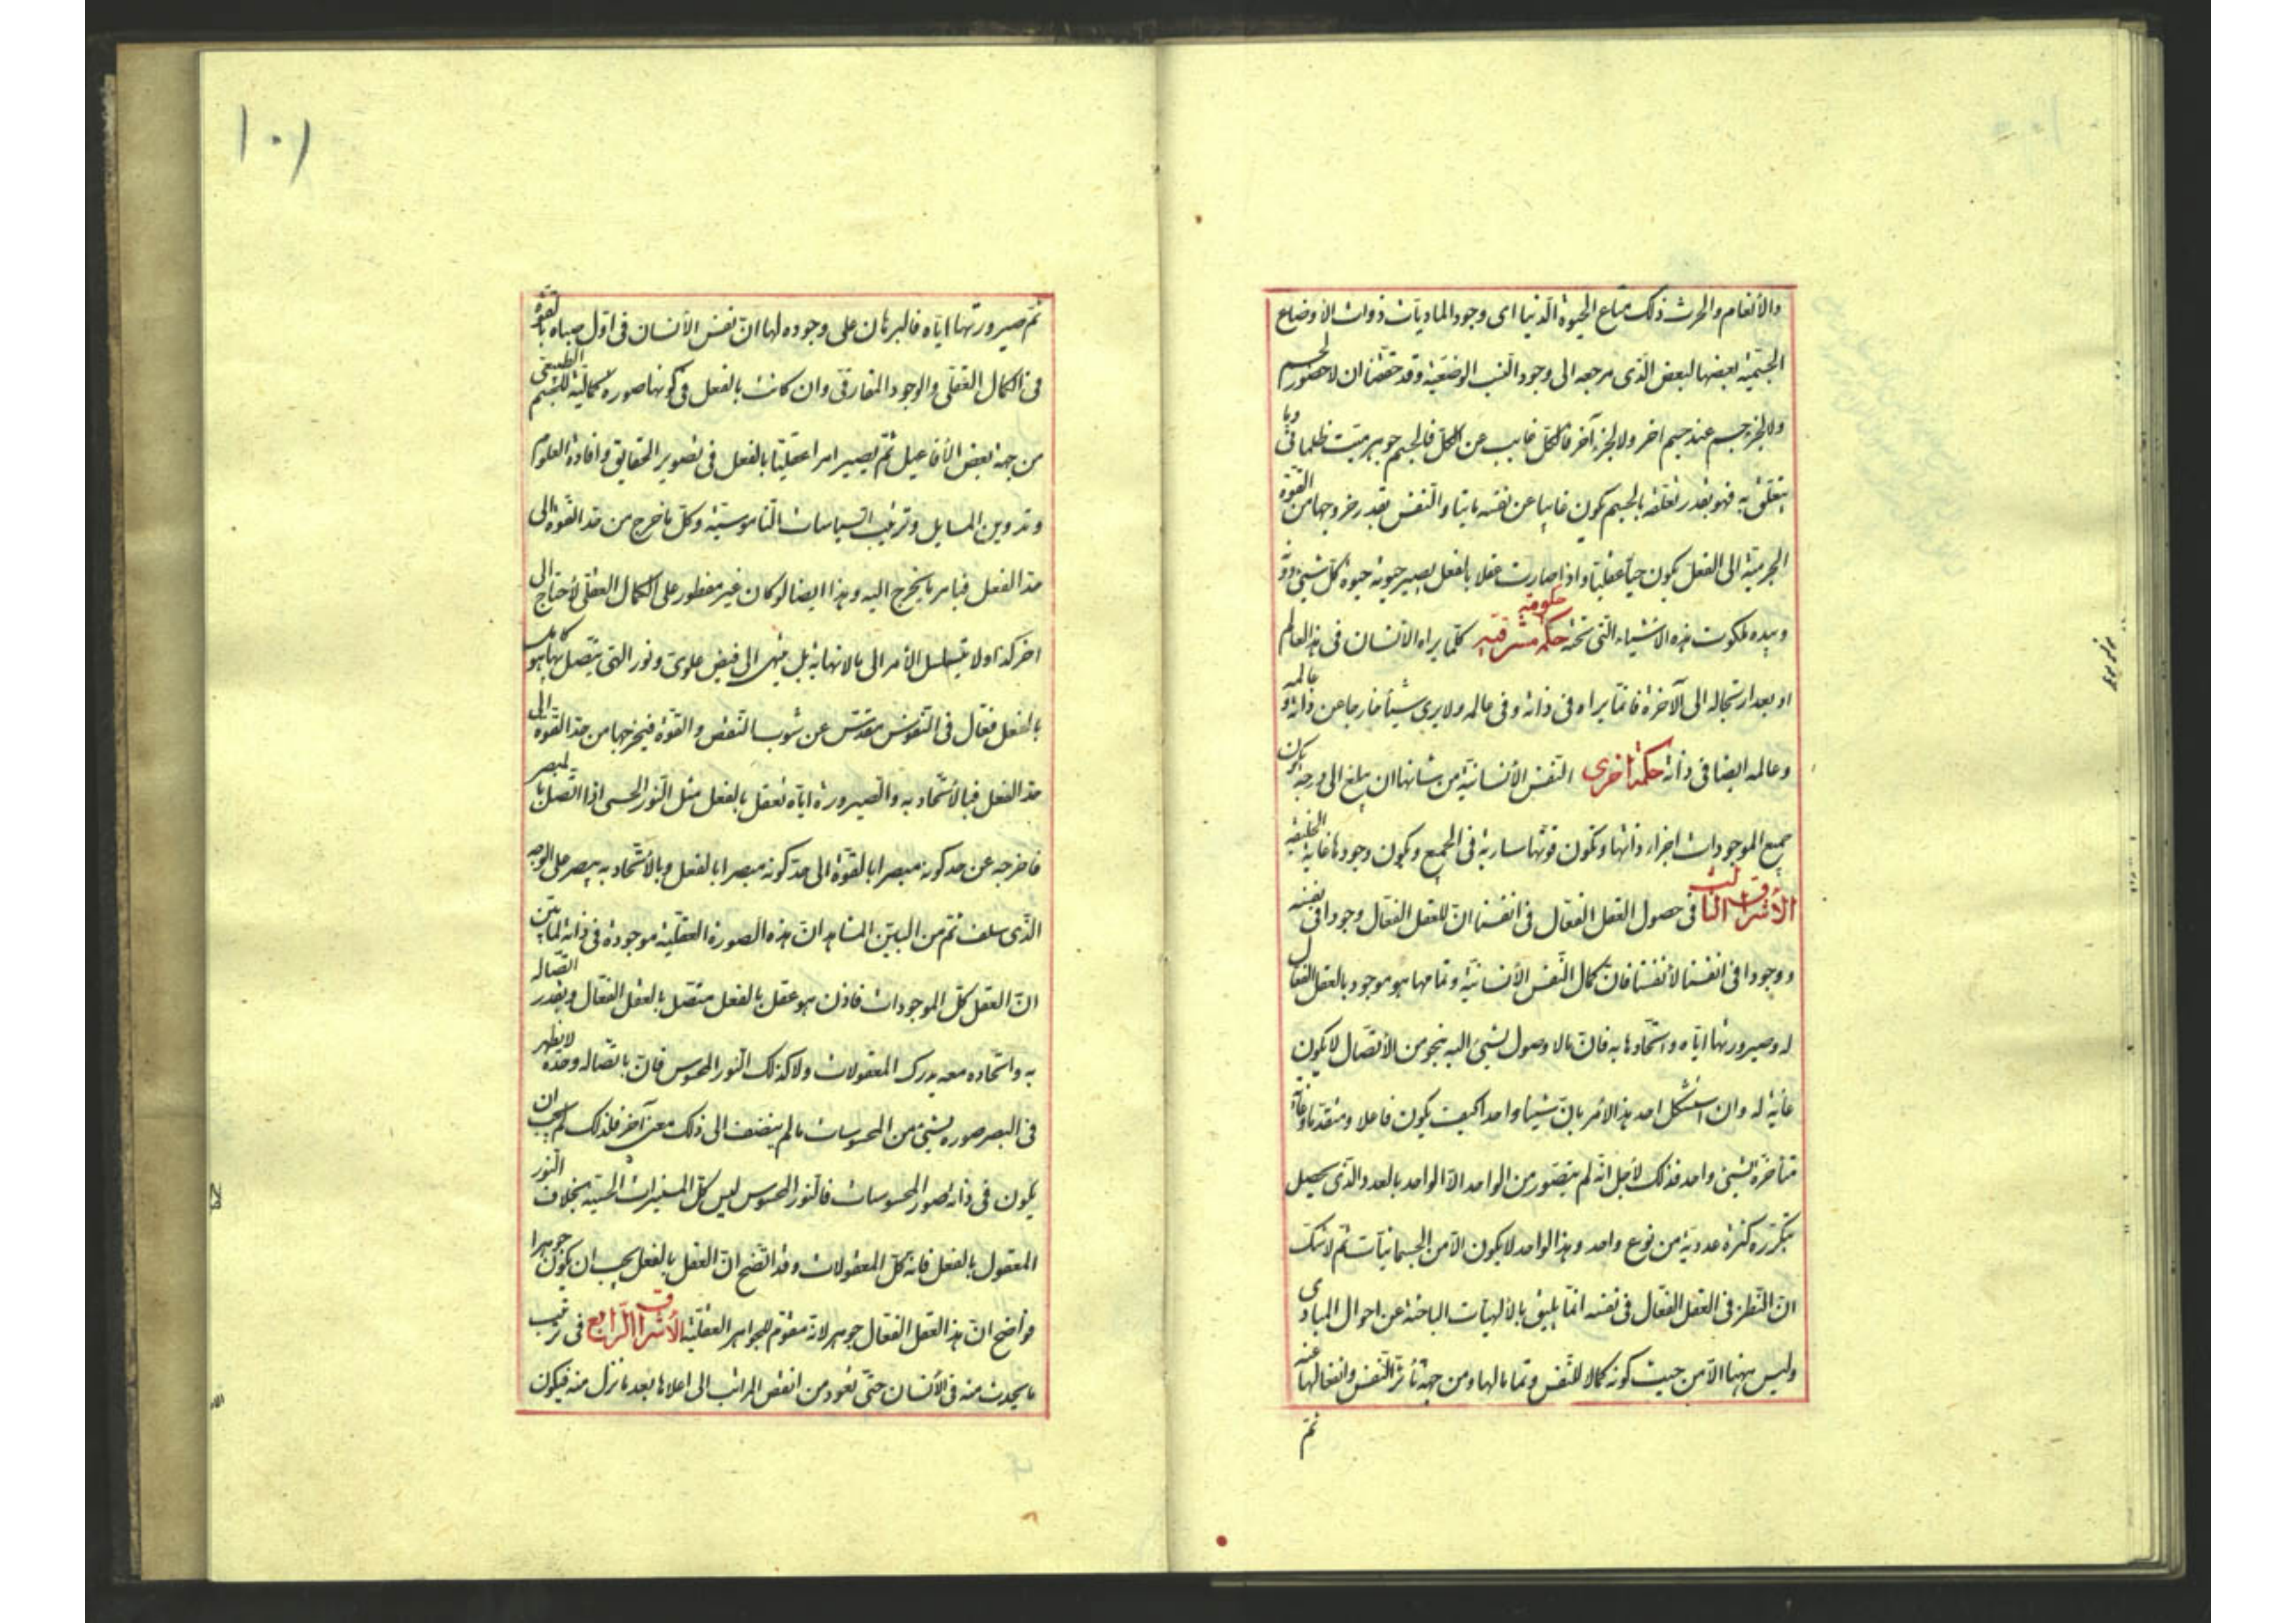 والأنعام والحرث ذلك متاع الحيوة الدنيا اى وجود الماديات ذوات الاوضاع
الجسمية بعضها لبعض الذى مرجعه الى وجود النسب الوضعية وقد حققنا ان لا حضور لجسم
ولا لجزء جسم عند جسم اخر ولا لجزء آخر فالكل غايب عن الكل فالجسم جوهر ميت ظلمانى وما
يتعلق به فهو بقدر تعلقه بالجسم يكون غايبا عن نفسه مايتا والنفس بقدر خروجها من القوة
الجرمية الى الفعل يكون حيا عقليا واذا صارت عقلا بالفعل يصير حيوته حيوة كل شيئ دونه
وبيده ملكوت هذه الاشياء التى تحته حكمة مشرقية كلما يراه الانسان فى هذا العالم
او بعد ارتحاله الى الآخرة فانما يراه فى ذاته وفى عالمه ولا يرى شيئا خارجا عن ذاته و عالمه
وعالمه ايضا فى ذاته حكمة اخرى النفس الأنسانية من شانها ان يبلغ الى درجة يكون
جميع الموجودات اجزاء ذاتها وتكون قوتها سارية فى الجميع ويكون وجودها غاية الخليقة
الأشراق الثالث فى حصول العقل الفعال فى انفسنا ان للعقل الفعال وجودا فى نفسه
ووجودا فى انفسنا لأنفسنا فان كمال النفس الأنسانية وتمامها هو موجود بالعقل الفعال
له وصيرورتها اياه واتحادها به فان مالا وصول لشيئ اليه بنحو من الأتصال لا يكون
غاية له وان استشكل احد هذا الأمر بان شيئا واحدا كيف يكون فاعلا ومتقدما وغاية
متأخرة لشيئ واحد فذلك لأجل انه لم يتصور من الواحد الا الواحد بالعدد والذى يحصل
بتكرره كثرة عددية من نوع واحد وهذا الواحد لا يكون الا من الجسمانيات ثم لا شك
ان النظر فى العقل الفعال فى نفسه انما يليق بالالهيات الباحثة عن احوال المبادى
وليس ههنا الا من حيث كونه كمالا للنفس وتماما لها ومن جهة تأثر النفس وانفعالها عنه
ثم
١٠١
ثم صيرورتها اياه فالبرهان على وجوده لها ان نفس الأنسان فى اول صباه بالقوة
فى الكمال العقلى والوجود المفارقى وان كانت بالفعل فى كونها صورة كمالية للجسم الطبيعى
من جهة بعض الأفاعيل ثم يصير امرا عقليا بالفعل فى تصوير الحقايق وافادة العلوم
وتدوين المسايل وترتيب السياسات الناموسية وكل ما خرج من حد القوة الى
حد الفعل فبامر ما يخرج اليه وهذا ايضا لو كان غير مفطور على الكمال العقلى لأحتاج الى
اخر كذا ولا يتسلسل الأمر الى مالا نهاية بل ينتهى الى فيض علوى ونور الهى يتصل بها هو كامل
بالفعل فعال فى النفوس مقدس عن شوب النقص والقوة فيخرجها من حد القوة الى
حد الفعل فبالأتحاد به والصيرورة اياه تعقل بالفعل مثل النور الحسى اذا اتصل بالبصر
فاخرجه عن حد كونه مبصرا بالقوة الى حد كونه مبصرا بالفعل وبالأتحاد به يبصر على الوجه
الذى سلف ثم من البين المشاهد ان هذه الصورة العقلية موجودة فى ذاته لما تبين
ان العقل كل الموجودات فاذن هو عقل بالفعل متصل بالعقل الفعال وبقدر اتصاله
به واتحاده معه يدرك المعقولات ولا كذلك النور المحسوس فان باتصاله وحده لا يظهر
فى البصر صورة لشيئ من المحسوسات ما لم ينضف الى ذلك معنى آخر فلذلك لم يجب ان
يكون فى ذاته صور المحسوسات فالنور المحسوس ليس كل المنيرات الحسية بخلاف النور
المعقول بالفعل فانه كل المعقولات وقد اتضح ان العقل بالفعل يجب ان يكون جوهرا
فواضح ان هذا العقل الفعال جوهر لانه مقوم للجواهر العقلية الأشراق الرابع فى ترتيب
ما يحدث منه فى الأنسان حتى تعود من انقص المراتب الى اعلاها بعد ما نزل منه فيكون